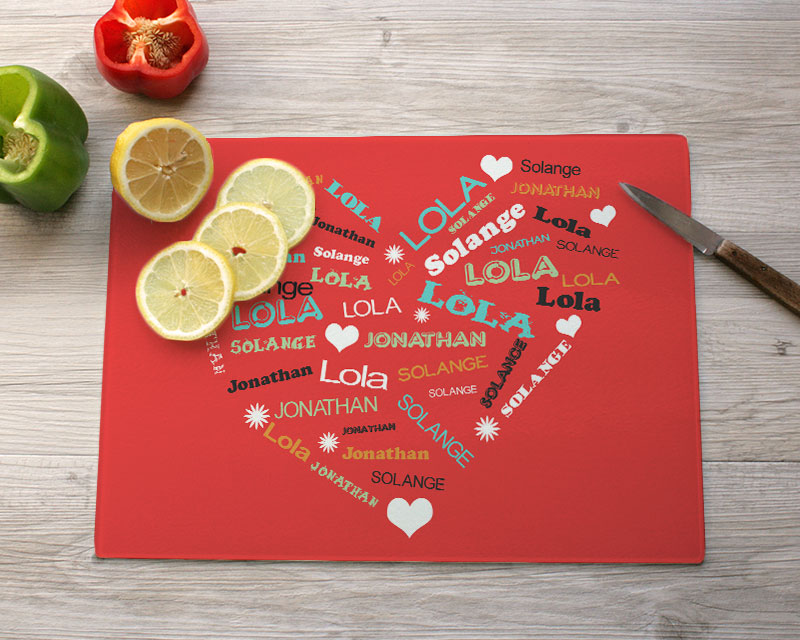 Solange
JONATHAN
LOLA
LOLA
SOLANGE
Solange
Lola
Jonathan
JONATHAN
SOLANGE
Solange
LOLA
LOLA
LOLA
LOLA
LOLA
Lola
LOLA
LOLA
SOLANGE
JONATHAN
SOLANGE
SOLANGE
Jonathan
Lola
SOLANGE
SOLANGE
JONATHAN
SOLANGE
JONATHAN
Lola
Jonathan
JONATHAN
SOLANGE